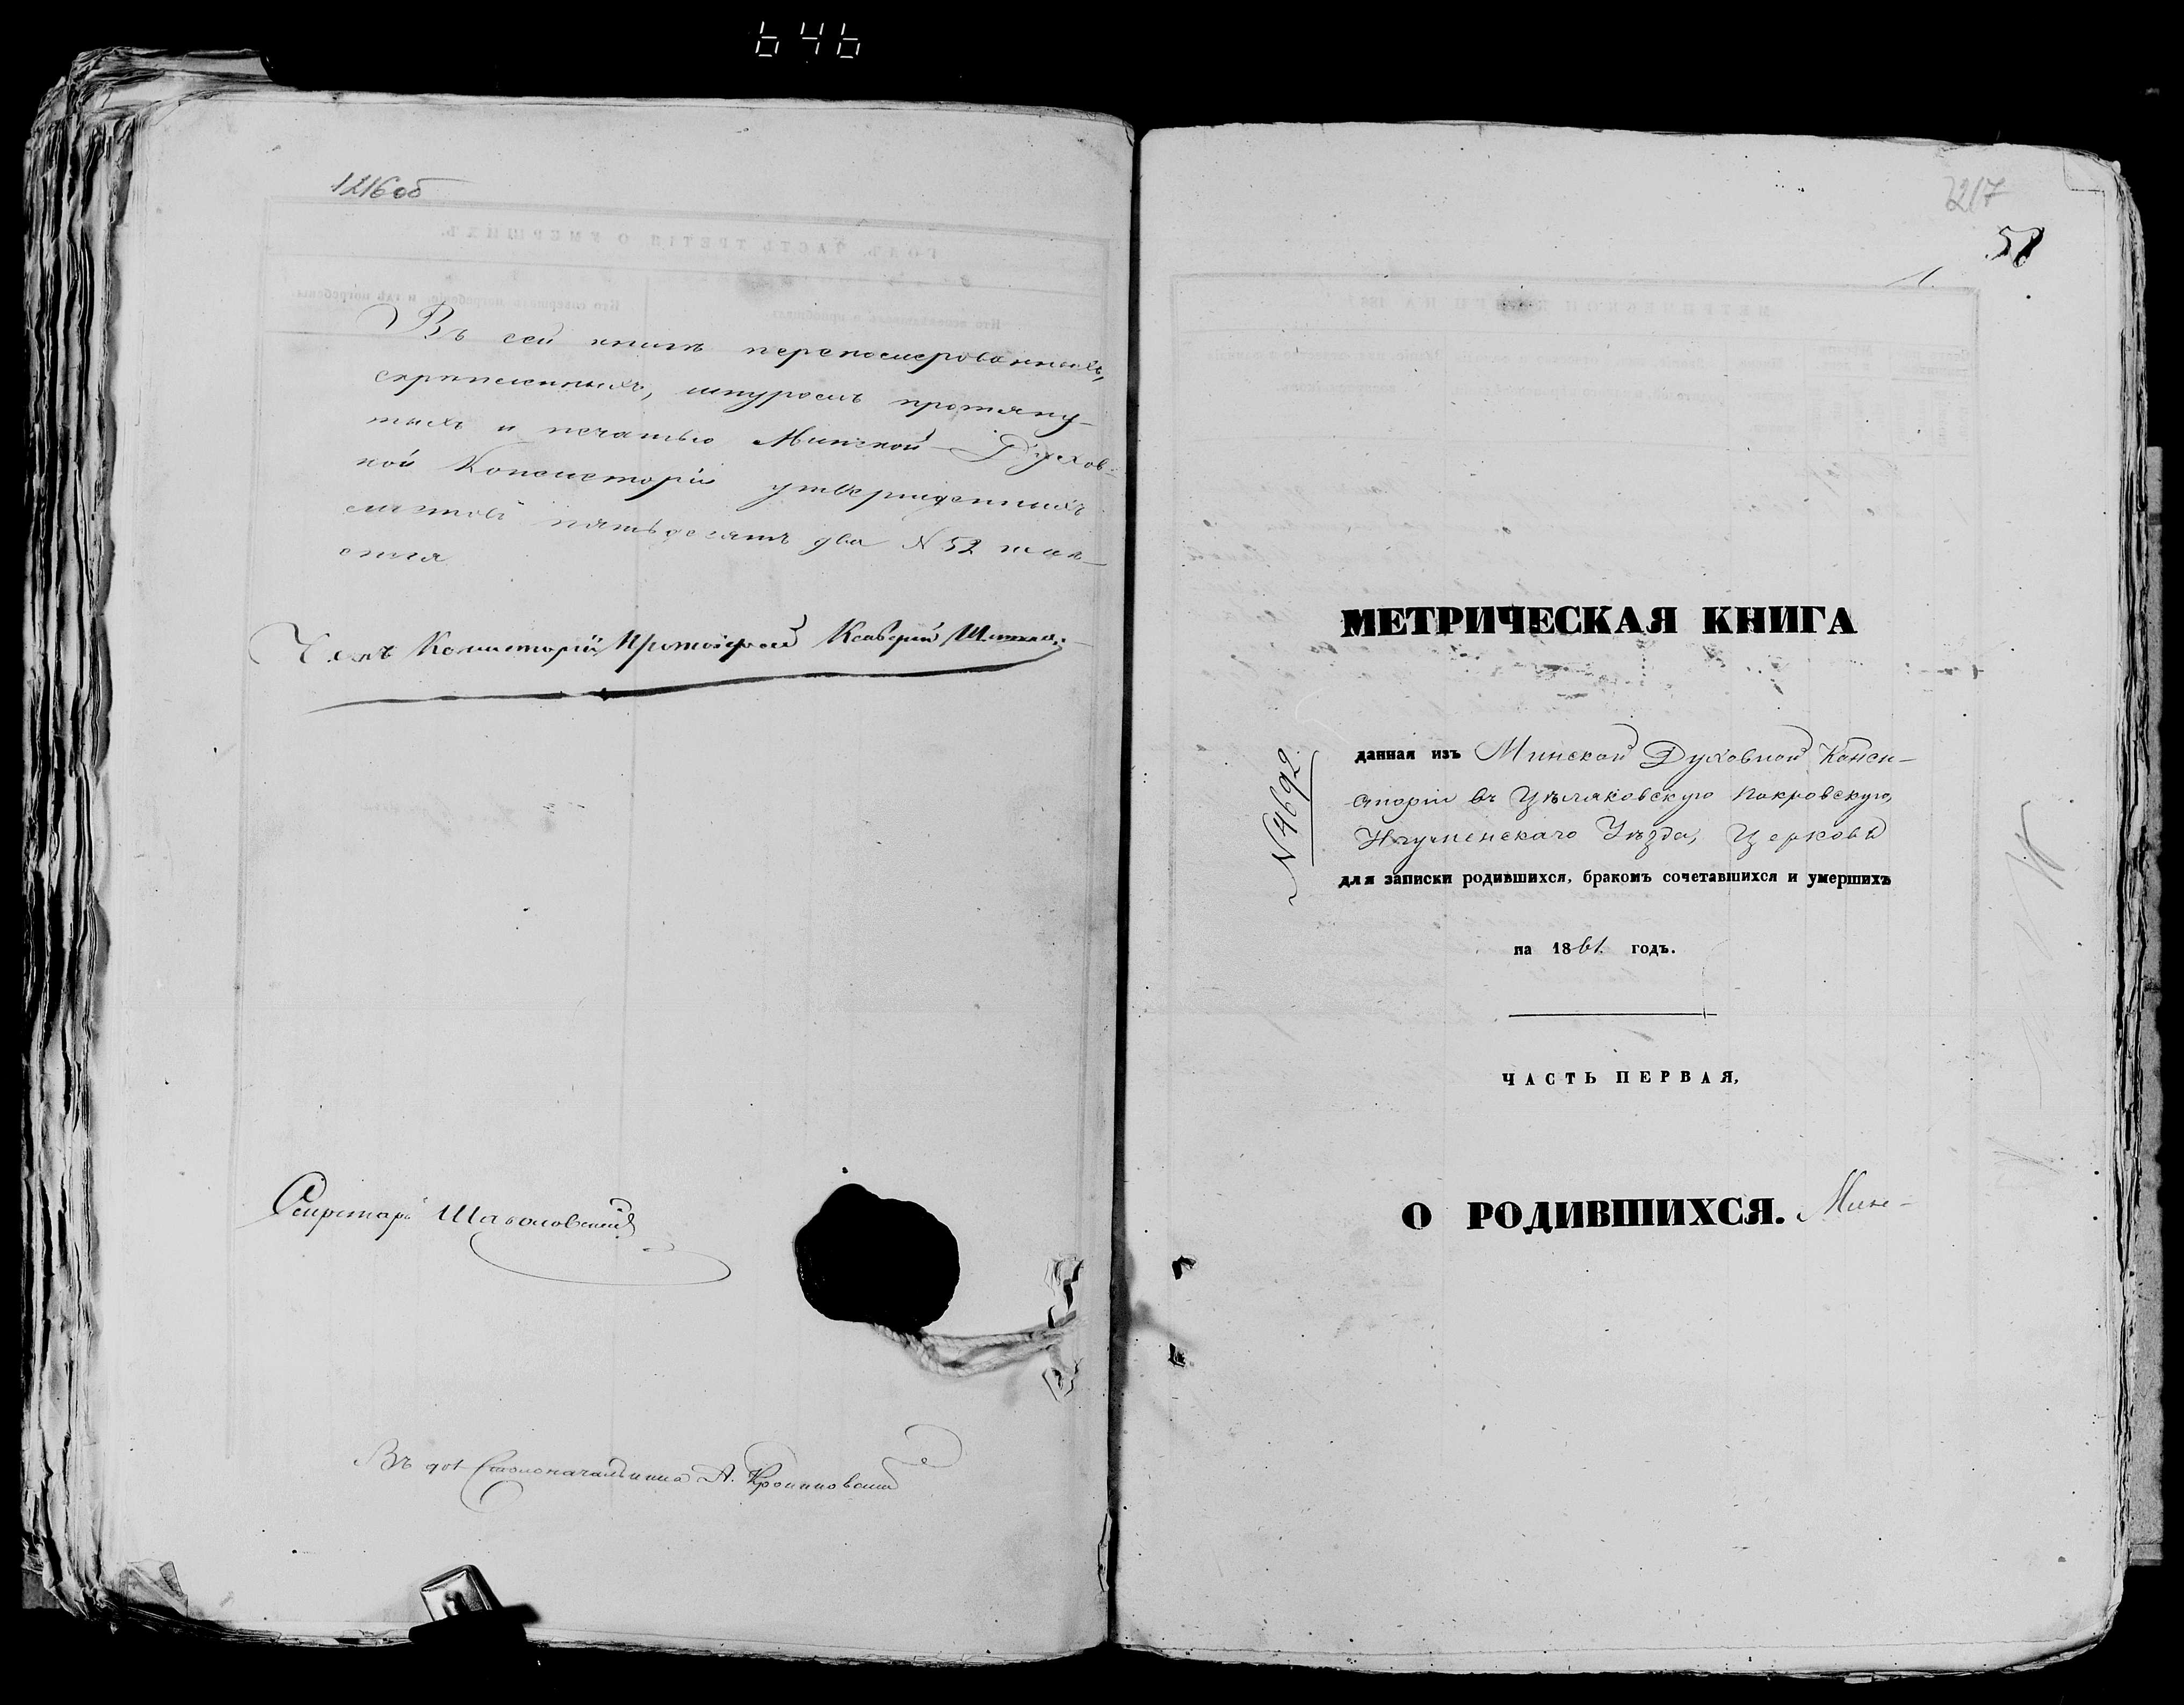 646
1216об
Въ сей книгѣ переномерованныхъ,
скрѣпленныхъ, шнуромъ протяну-
тыхъ и печатью Минской Духов-
ной Консисторіи утвержденныхъ
листовъ пятьдесятъ два N 52
Членъ Консисторіи Протоіерей
Секретарь
Въ дол. Столоначальника А.
1217
58
1.
МЕТРИЧЕСКАЯ КНИГА
данная изъ Минской Духовной Конси-
сторіи въ Цѣляковскую Покровскую,
Игуменскаго Уѣзда, Церковь
N 4692
для записки родившихся, бракомъ сочетавшихся и умершихъ
на 1861. годъ.
ЧАСТЬ ПЕРВАЯ,
О РОДИВШИХСЯ. Мин-